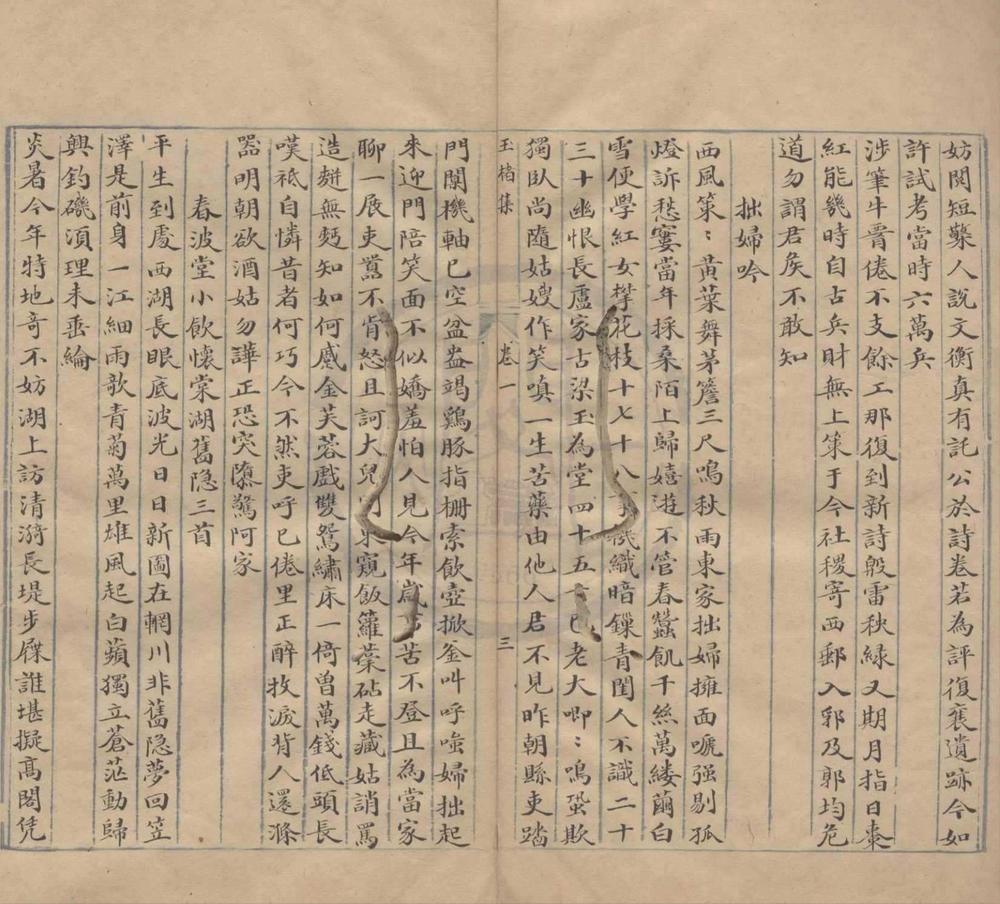 妨閱短檠人說文衡真有託公於詩卷若為評復襄遺跡今如
許試考當時六萬兵
涉筆牛晋倦不支餘工那復到新詩殷雷秧緑又期月指日棗
紅能幾時自古兵財無上策于今社稷寄西郵入郛及郭均危
道勿謂君矦不敢知
拙婦吟
西風策〻黃葉舞茅簷三尺鳴秋雨東家拙婦擁面嚬强剔孤
燈訴愁寠當年採桑陌上歸嬉遊不管春蠶飢千絲萬縷繭白
雪便學紅女攀花枝十七十八織暗鏁青閨人不識二十
三十幽恨長盧家古梁玉為堂四十五老大唧〻鳴蛩欺
獨臥尚隨姑嫂作笑嗔一生苦藥由他人君不見昨朝縣吏踏
玉楮集
卷一
三
門闌機軸已空盆盎竭鷄豚指柵索飲壺掀釜叫呼嗤婦拙起
來迎門陪笑面不似嬌羞怕人見今年苦不登且為當家
聊一展吏嵩不肯怒且訶大兒窺飯籮藁砧走藏姑誚罵
造麰無麪知如何慼金芙蓉戲雙鴛繡床一倚曾萬錢低頭長
嘆祇自憐昔者何巧今不然吏呼已倦里正醉抆淚背人還滌
器明朝欲酒姑勿譁正恐突隳驚阿家
春波堂小飲懷棠湖舊隐三首
平生到處西湖長眼底波光日日新圖在輞川非舊隐夢回笠
澤是前身一江細雨歌青菊萬里雄風起白蘋獨立蒼茫動歸
興釣磯湏理未垂綸
炎暑今年特地奇不妨湖上訪清漪長堤步屧誰堪擬髙閣凭